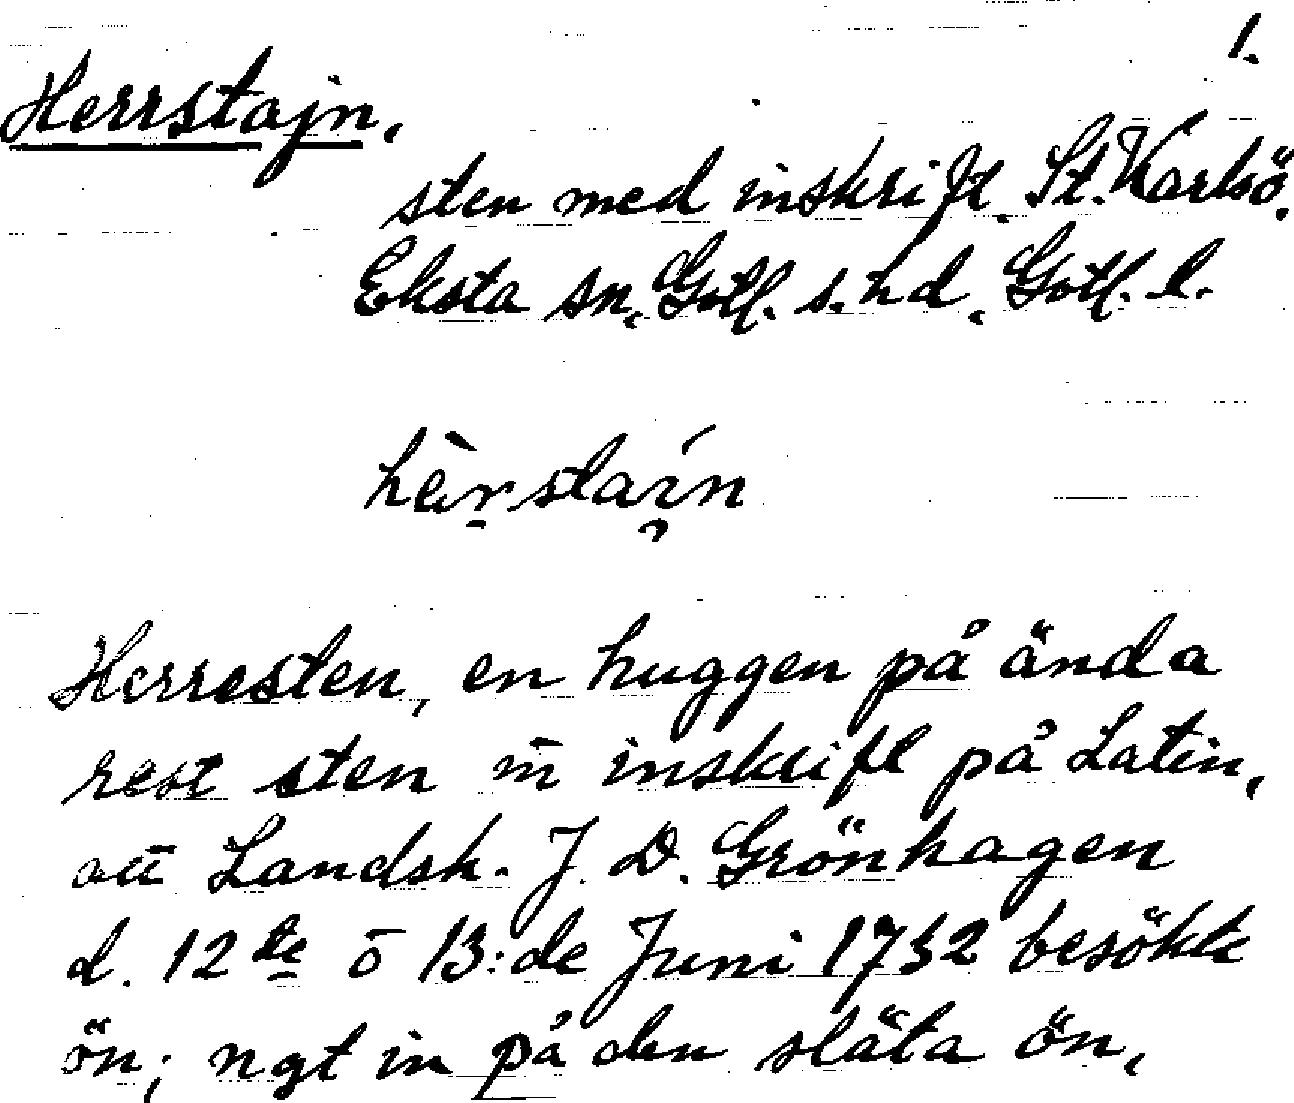 1.
Herrstajn,
sten med inskrift. St. Karlsö,
Eksta sn, Gotl. s. hd, Gotl. l.
hèr̯staı̨́n
Herresten, en huggen på ända
rest sten m̄ inskrift på Latin,
att Landsh. J. D. Grönhagen
d. 12te ō 13:de Juni 1732 besökte
ön; ngt in på den släta ön,